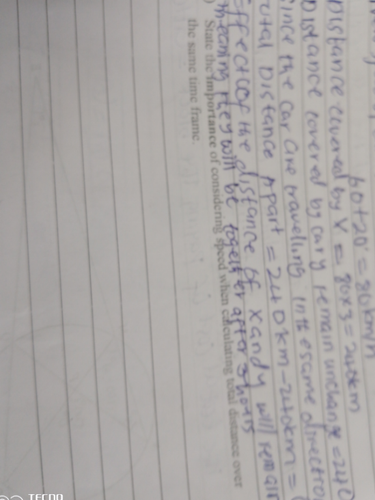 60+20 = 80km/h
Distance covered by X = 80x3 = 240km
Distance covered by car y remain unchange = 240
Since the car are travelling in the same direction
Total Distance Apart = 240km-240km =
Effect of the distance of x and y will remain
meaning they will be together after 3 hours
State the importance of considering speed when calculating total distance over
the same time frame.
TECNO